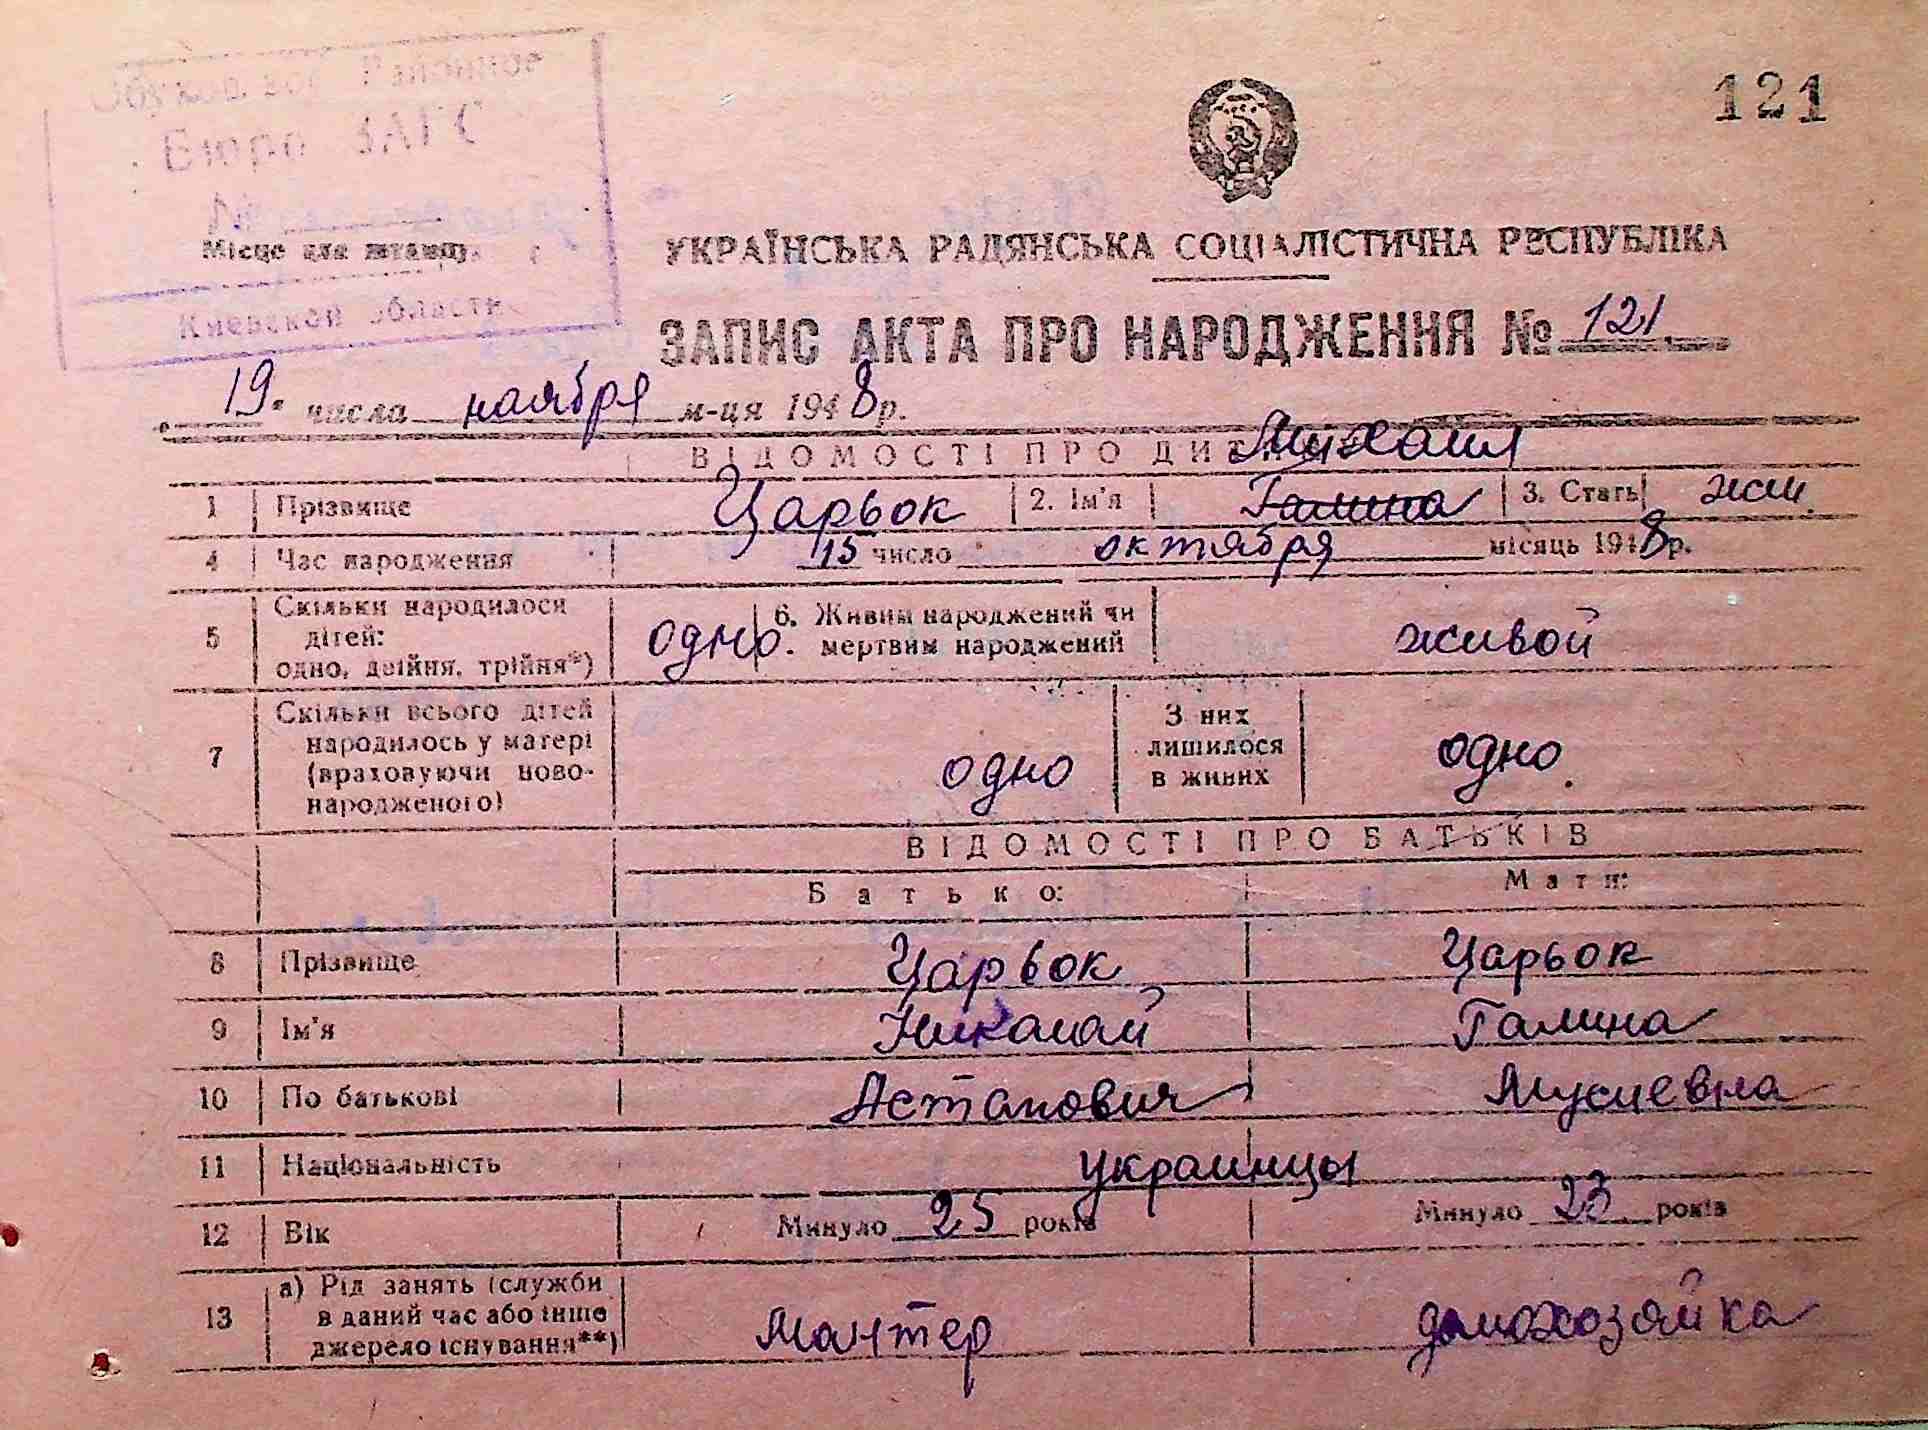 121
Бюро ЗАГС
№
Місце для штампу
Киевской области
УКРАЇНСЬКА РАДЯНСЬКА СОЦІАЛІСТИЧНА РЕСПУБЛІКА
ЗАПИС АКТА ПРО НАРОДЖЕННЯ № 121
19 числа ноября м-ця 1948 р.
ВІДОМОСТІ ПРО ДИТ Михаил
1 Прізвище Царьок 2. Ім'я Галина 3. Стать
4 Час народження 15 число октября місяць 1948 р.
5 Скільки народилося дітей: одно, двійня, трійня*) одно. 6. Живим народжений чи мертвим народжений живой
7 Скільки всього дітей народилось у матері (враховуючи ново-народженого) одно З них лишилося в живих одно.
ВІДОМОСТІ ПРО БАТЬКІВ
Батько: Мати:
8 Прізвище Царьок Царьок
9 Ім'я Николай Галина
10 По батькові Астапович Мусиевна
11 Національність украинцы
12 Вік Минуло 25 років Минуло 23 років
13 а) Рід занять (служби в даний час або інше джерело існування**) Мантер домохозяйка